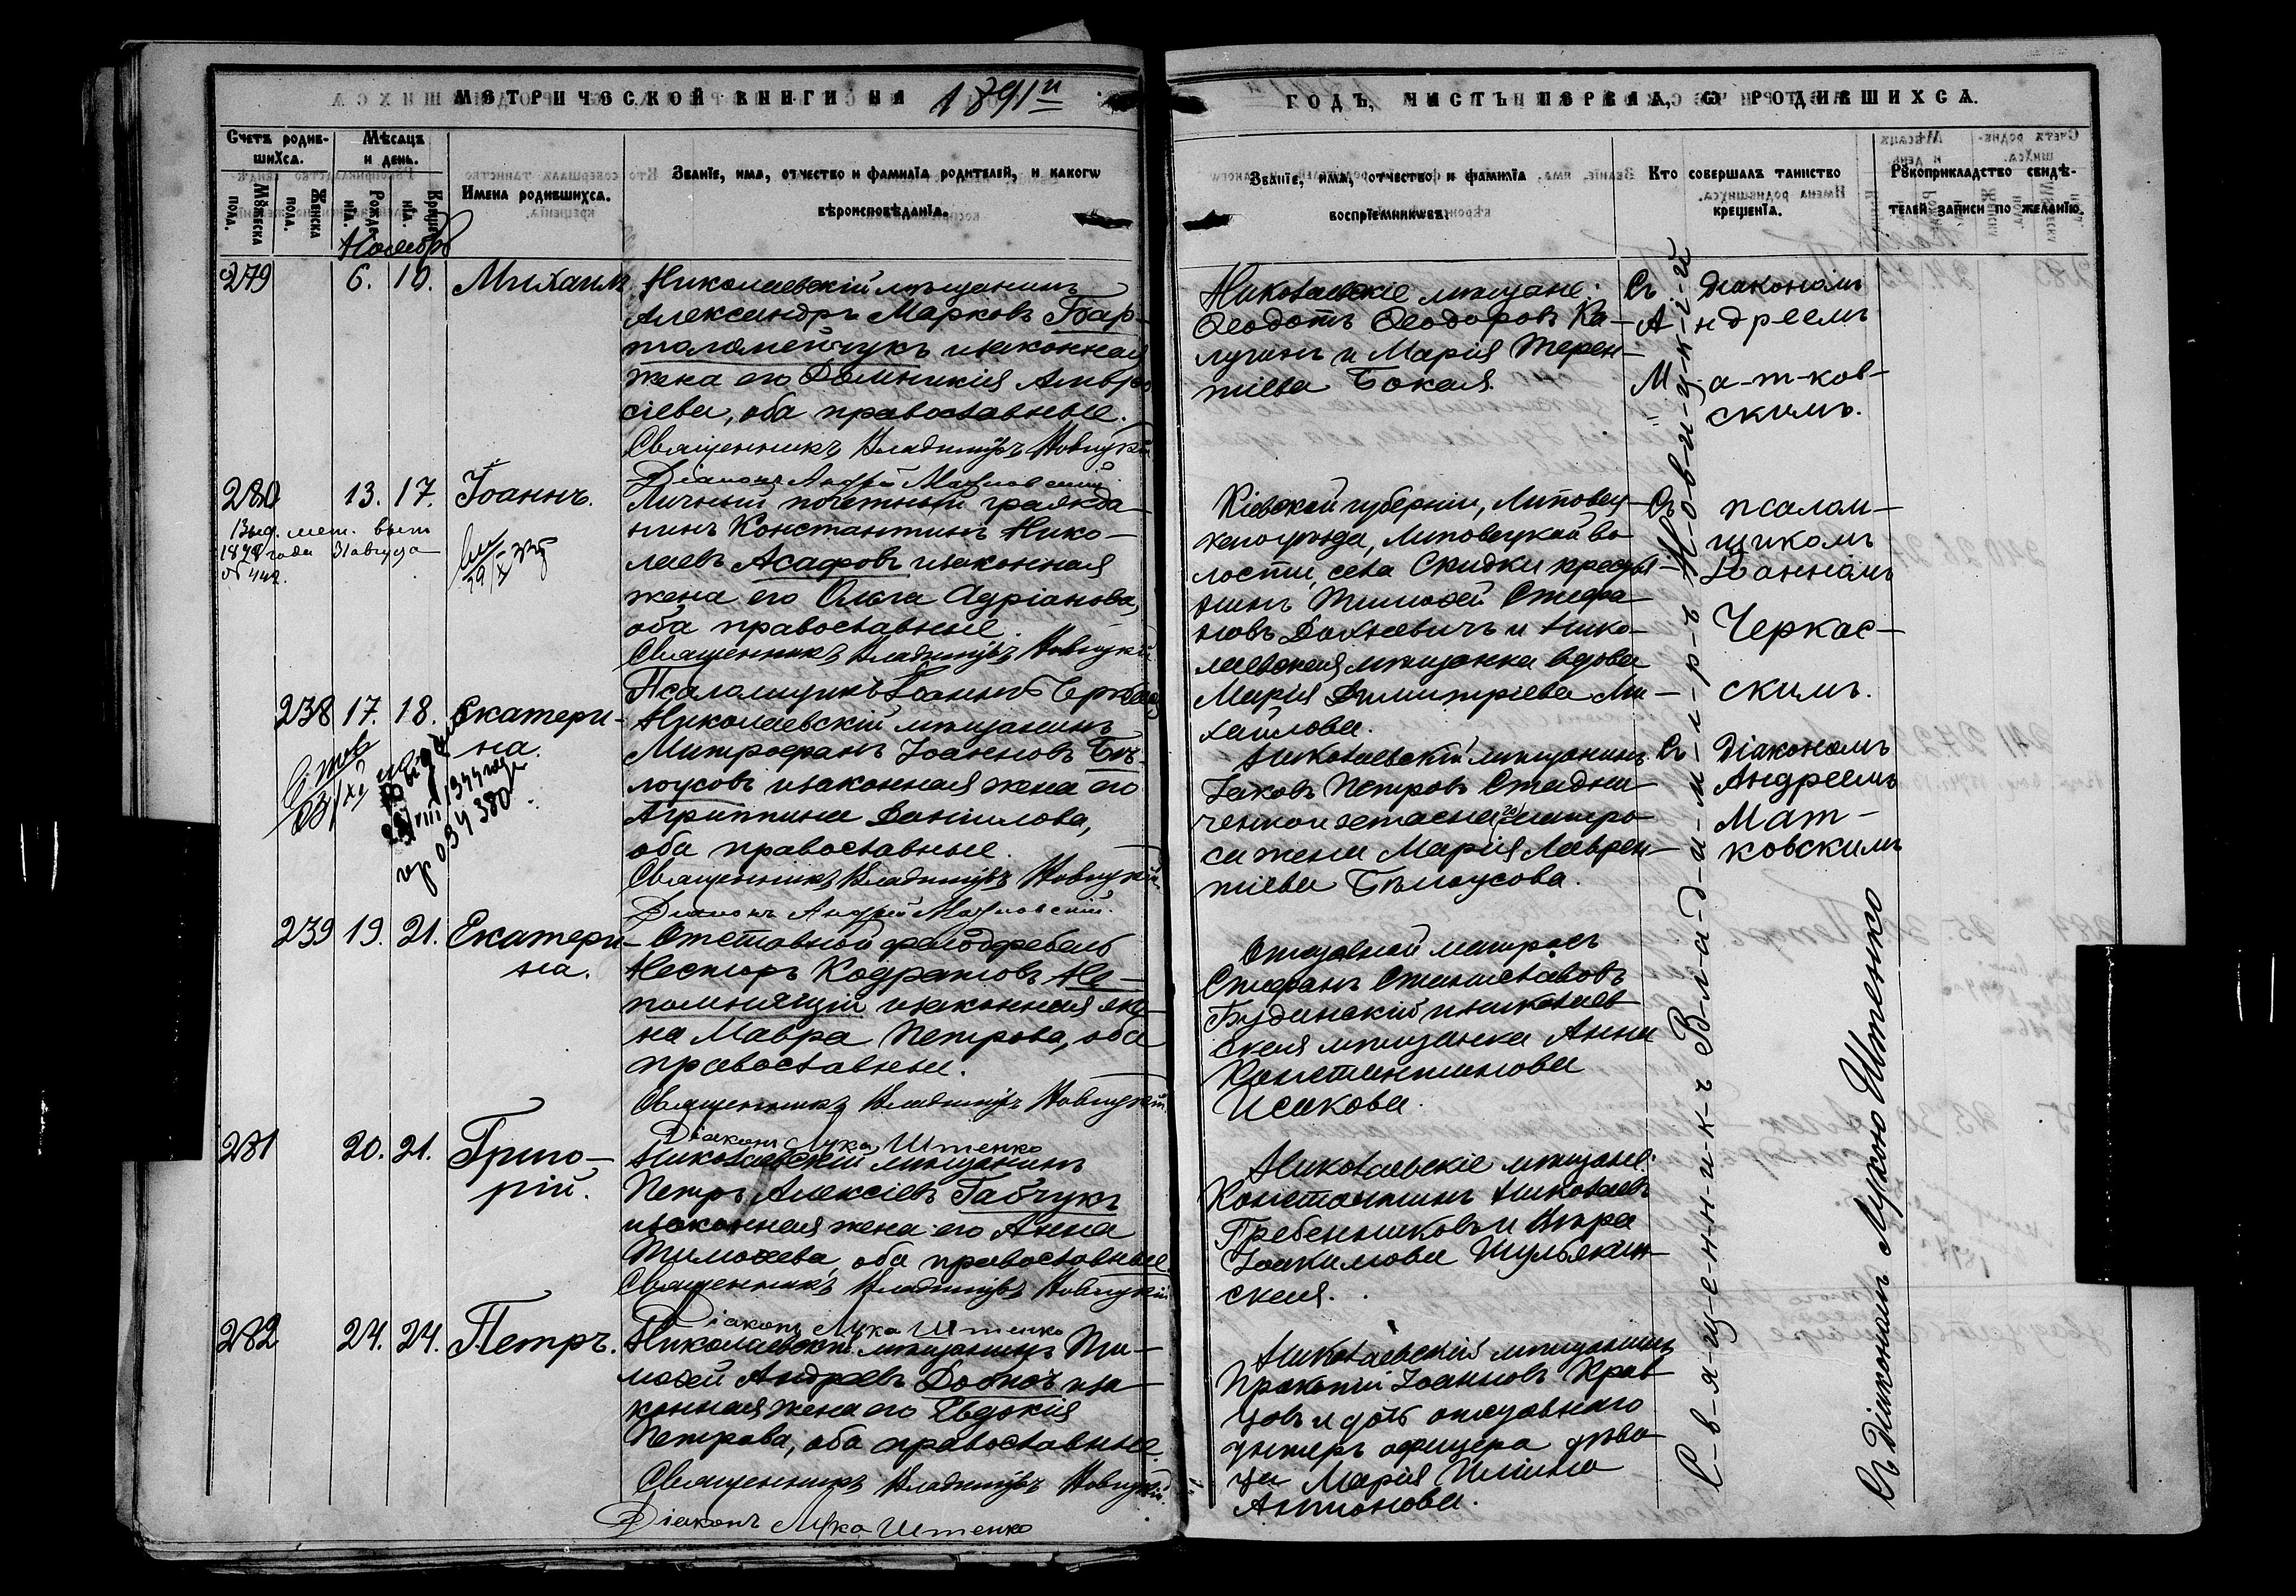 МЕТРИЧЕСКОЙ КНИГИ НА 1891й
Счетъ родив-
шихсѧ.
Мѣсѧцъ
и день.
Мꙋжеска
пола.
Женска
пола.
Рожде-
нїѧ.
Креще-
нїѧ.
Имена родившихсѧ.
Званїе, имѧ, отчество и фамилїѧ родителей, и какогѡ
вѣроисповѣданїѧ.
Ноябрь
279 6. 10. Михаилъ
Николаевскій мѣщанинъ
Александръ Марковъ Бар-
толомейчукъ и законная
жена его Домникія Амвро
сіева, оба православные.
Священникъ Владиміръ Новицкій
Діаконъ Андрей Матковскій.
280 13. 17. Іоаннъ.
Выд. мет. вып
1898 года 31 августа
№ 442.
Личный почетный гражда-
нинъ Константинъ Нико-
лаевъ Асафовъ и законная
жена его Ольга Адріанова,
оба православные.
Священникъ Владиміръ Новицкій
Псаломщикъ Іоаннъ Черкасскій
238 17. 18. Екатери-
на.
28/VIII 1944 года
034380
Николаевскій мѣщанинъ
Митрофанъ Іоанновъ Бѣ-
лоусовъ и законная жена его
Агриппина Даніилова,
оба православные.
Священникъ Владиміръ Новицкій
Діаконъ Андрей Матковскій.
239 19. 21. Екатери-
на.
Отставной фельдфебель
Несторъ Кодратовъ Не-
помнящій и законная же-
на Мавра Петрова, оба
православные.
Священникъ Владиміръ Новицкій
Діаконъ Лука Штенко
281 20. 21. Григо-
рій.
Николаевскій мѣщанинъ
Петръ Алексіевъ Гайчукъ
и законная жена его Анна
Тимофеева, оба православные.
Священникъ Владиміръ Новицкій
Діаконъ Лука Штенко
282 24. 24. Петръ.
Николаевскій мѣщанинъ Ти-
мофей Андреевъ и за-
конная жена его Евдокія
Петрова, оба православные.
Священникъ Владиміръ Новицкій.
Діаконъ Лука Штенко
ГОДЪ, ЧАСТЬ ПЕРВАѦ, Ѡ РОДИВШИХСѦ.
Званїе, имѧ, отчество и фамилїѧ
воспрїемниковъ.
Кто совершалъ таинство
крещенїѧ.
Рꙋкоприкладство свидѣ-
телей записи по желанїю.
Николаевскіе мѣщане:
Ѳеодотъ Ѳеодоровъ Ка-
лугинъ и Марія Терен-
тіева Бокая.
Съ діакономъ
Андреемъ
М-а-т-ков-
скимъ.
Кіевской губерніи, Липовец-
каго уѣзда, Липовецкой во-
лости, села Скидки крестья-
нинъ Тимофей Стефа-
новъ Дахневичъ и Нико-
лаевская мѣщанка вдова
Марія Димитріева Ми-
хайлова.
Съ псалом-
щикомъ
Іоанномъ
Черкас-
скимъ.
Николаевскій мѣщанинъ
Іаковъ Петровъ Стадни-
ченко и отставнаго матро-
са жена Марія Лаврен-
тіева Бѣлоусова.
Съ діакономъ
Андреемъ
Мат-
ковскимъ
Отставной матросъ
Стефанъ Станиславовъ
Будинскій и николаев-
ская мѣщанка Анна
Константинова
Исакова.
Николаевскіе мѣщане:
Константинъ Николаевъ
Гребенниковъ и Вѣра
Іоакимова Шульжин-
ская.
Николаевскій мѣщанинъ
Прокопій Іоанновъ Крав-
цовъ и дочь отставнаго
унтеръ офицера дѣви-
ца Марія Ильина
Антонова.
С-в-я-щ-е-н-н-и-к-ъ В-л-а-д-и-м-і-р-ъ Н-о-в-и-ц-к-і-й
Съ Діакономъ Лукою Штенко